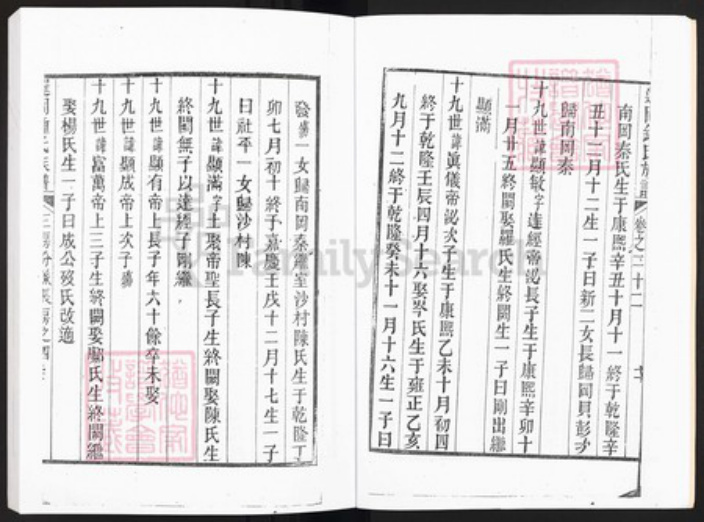 南岡秦氏生于康熙辛丑十月十一終于乾隆辛
丑十二月十二生一子日新二女長歸岡貝彭次
歸南岡秦
十九世諱顯敏字達經帝認長子生于康熙辛卯十
一月廿五終闕娶羅氏生終闕生一子曰剛出繼
顯滿
十九世諱眞儀帝認次子生于康熙乙未十月初四
終于乾隆壬辰四月十六娶岑氏生于雍正乙亥
九月十二終于乾隆癸未十一月十六生一子曰
卷之二十二
發彝一女歸南岡秦繼室沙村陳氏生于乾隆丁
卯七月初十終于嘉慶壬戌十二月十七生一子
曰社平一女歸沙村陳
十九世諱顯滿字土聚帝聖長子生終闕娶陳氏生
終闕無子以達經子剛繼
十九世諱顯有帝上長子年六十餘卒未娶
十九世諱顯成帝上次子
十九世諱富萬帝上三子生終闕娶關氏生終闕繼
娶楊氏生一子曰成公歿氏改適
FamilySearch